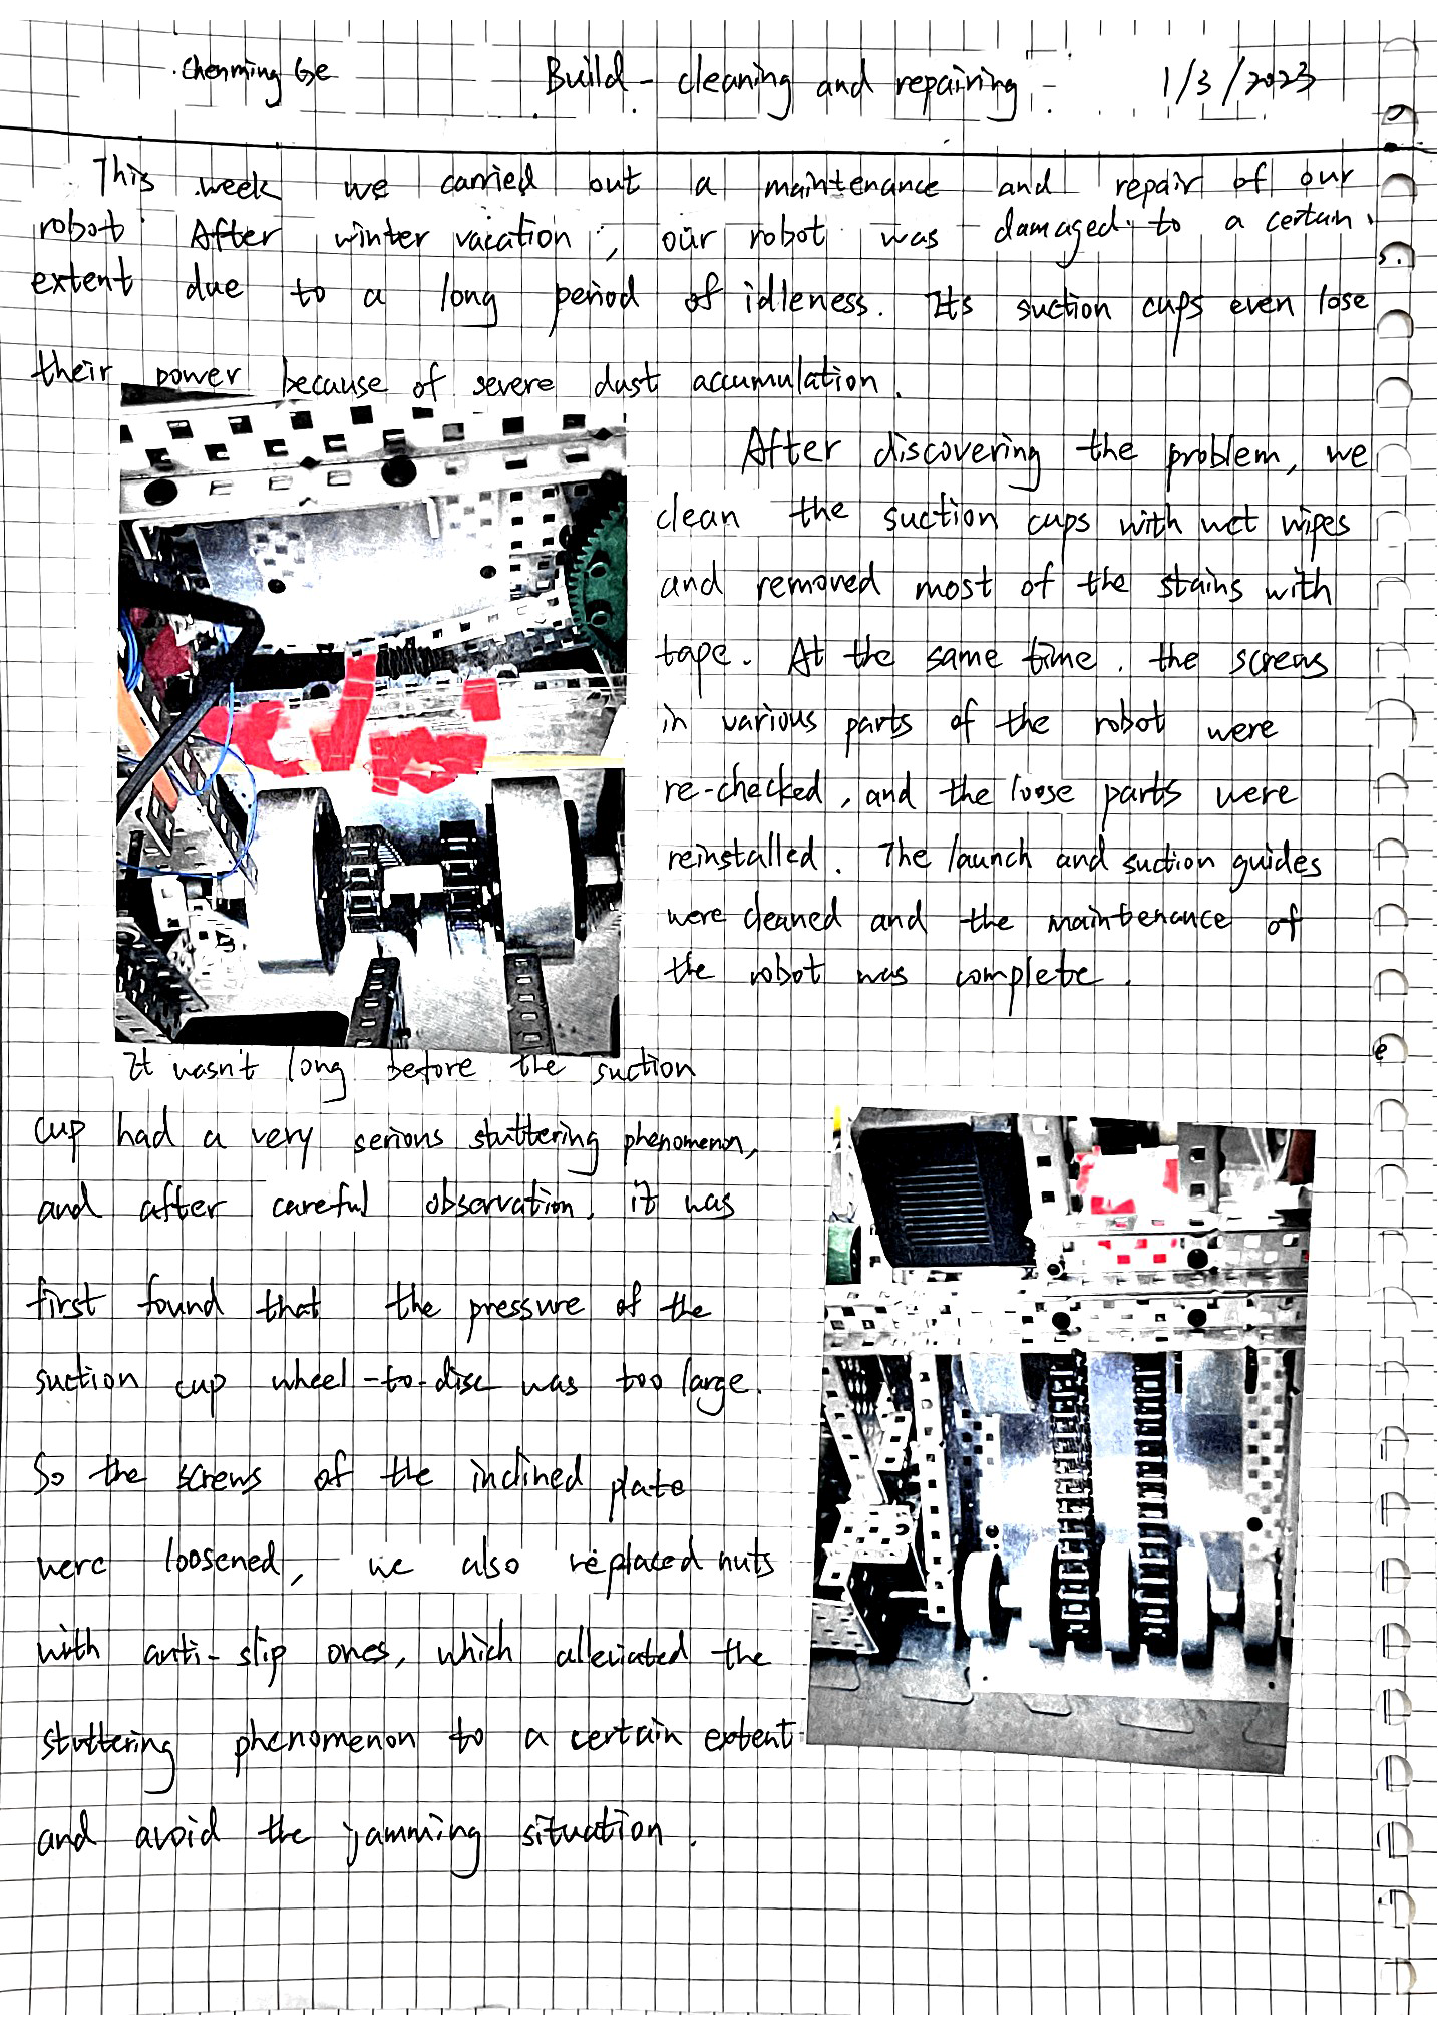 Chenming Ge Build - cleaning and repairing 1/3/2023
This week we carried out a maintenance and repair of our
robot. After winter vacation, our robot was damaged to a certain
extent due to a long period of idleness. Its suction cups even lose
their power because of severe dust accumulation.
After discovering the problem, we
clean the suction cups with wet wipes
and removed most of the stains with
tape. At the same time, the screws
in various parts of the robot were
re-checked, and the loose parts were
reinstalled. The launch and suction guides
were cleaned and the maintenance of
the robot was complete.
It wasn't long before the suction
cup had a very serious stuttering phenomenon,
and after careful observation, it was
first found that the pressure of the
suction cup wheel-to-disc was too large.
So the screws of the inclined plate
were loosened, we also replaced nuts
with anti-slip ones, which alleviated the
stuttering phenomenon to a certain extent
and avoid the jamming situation.